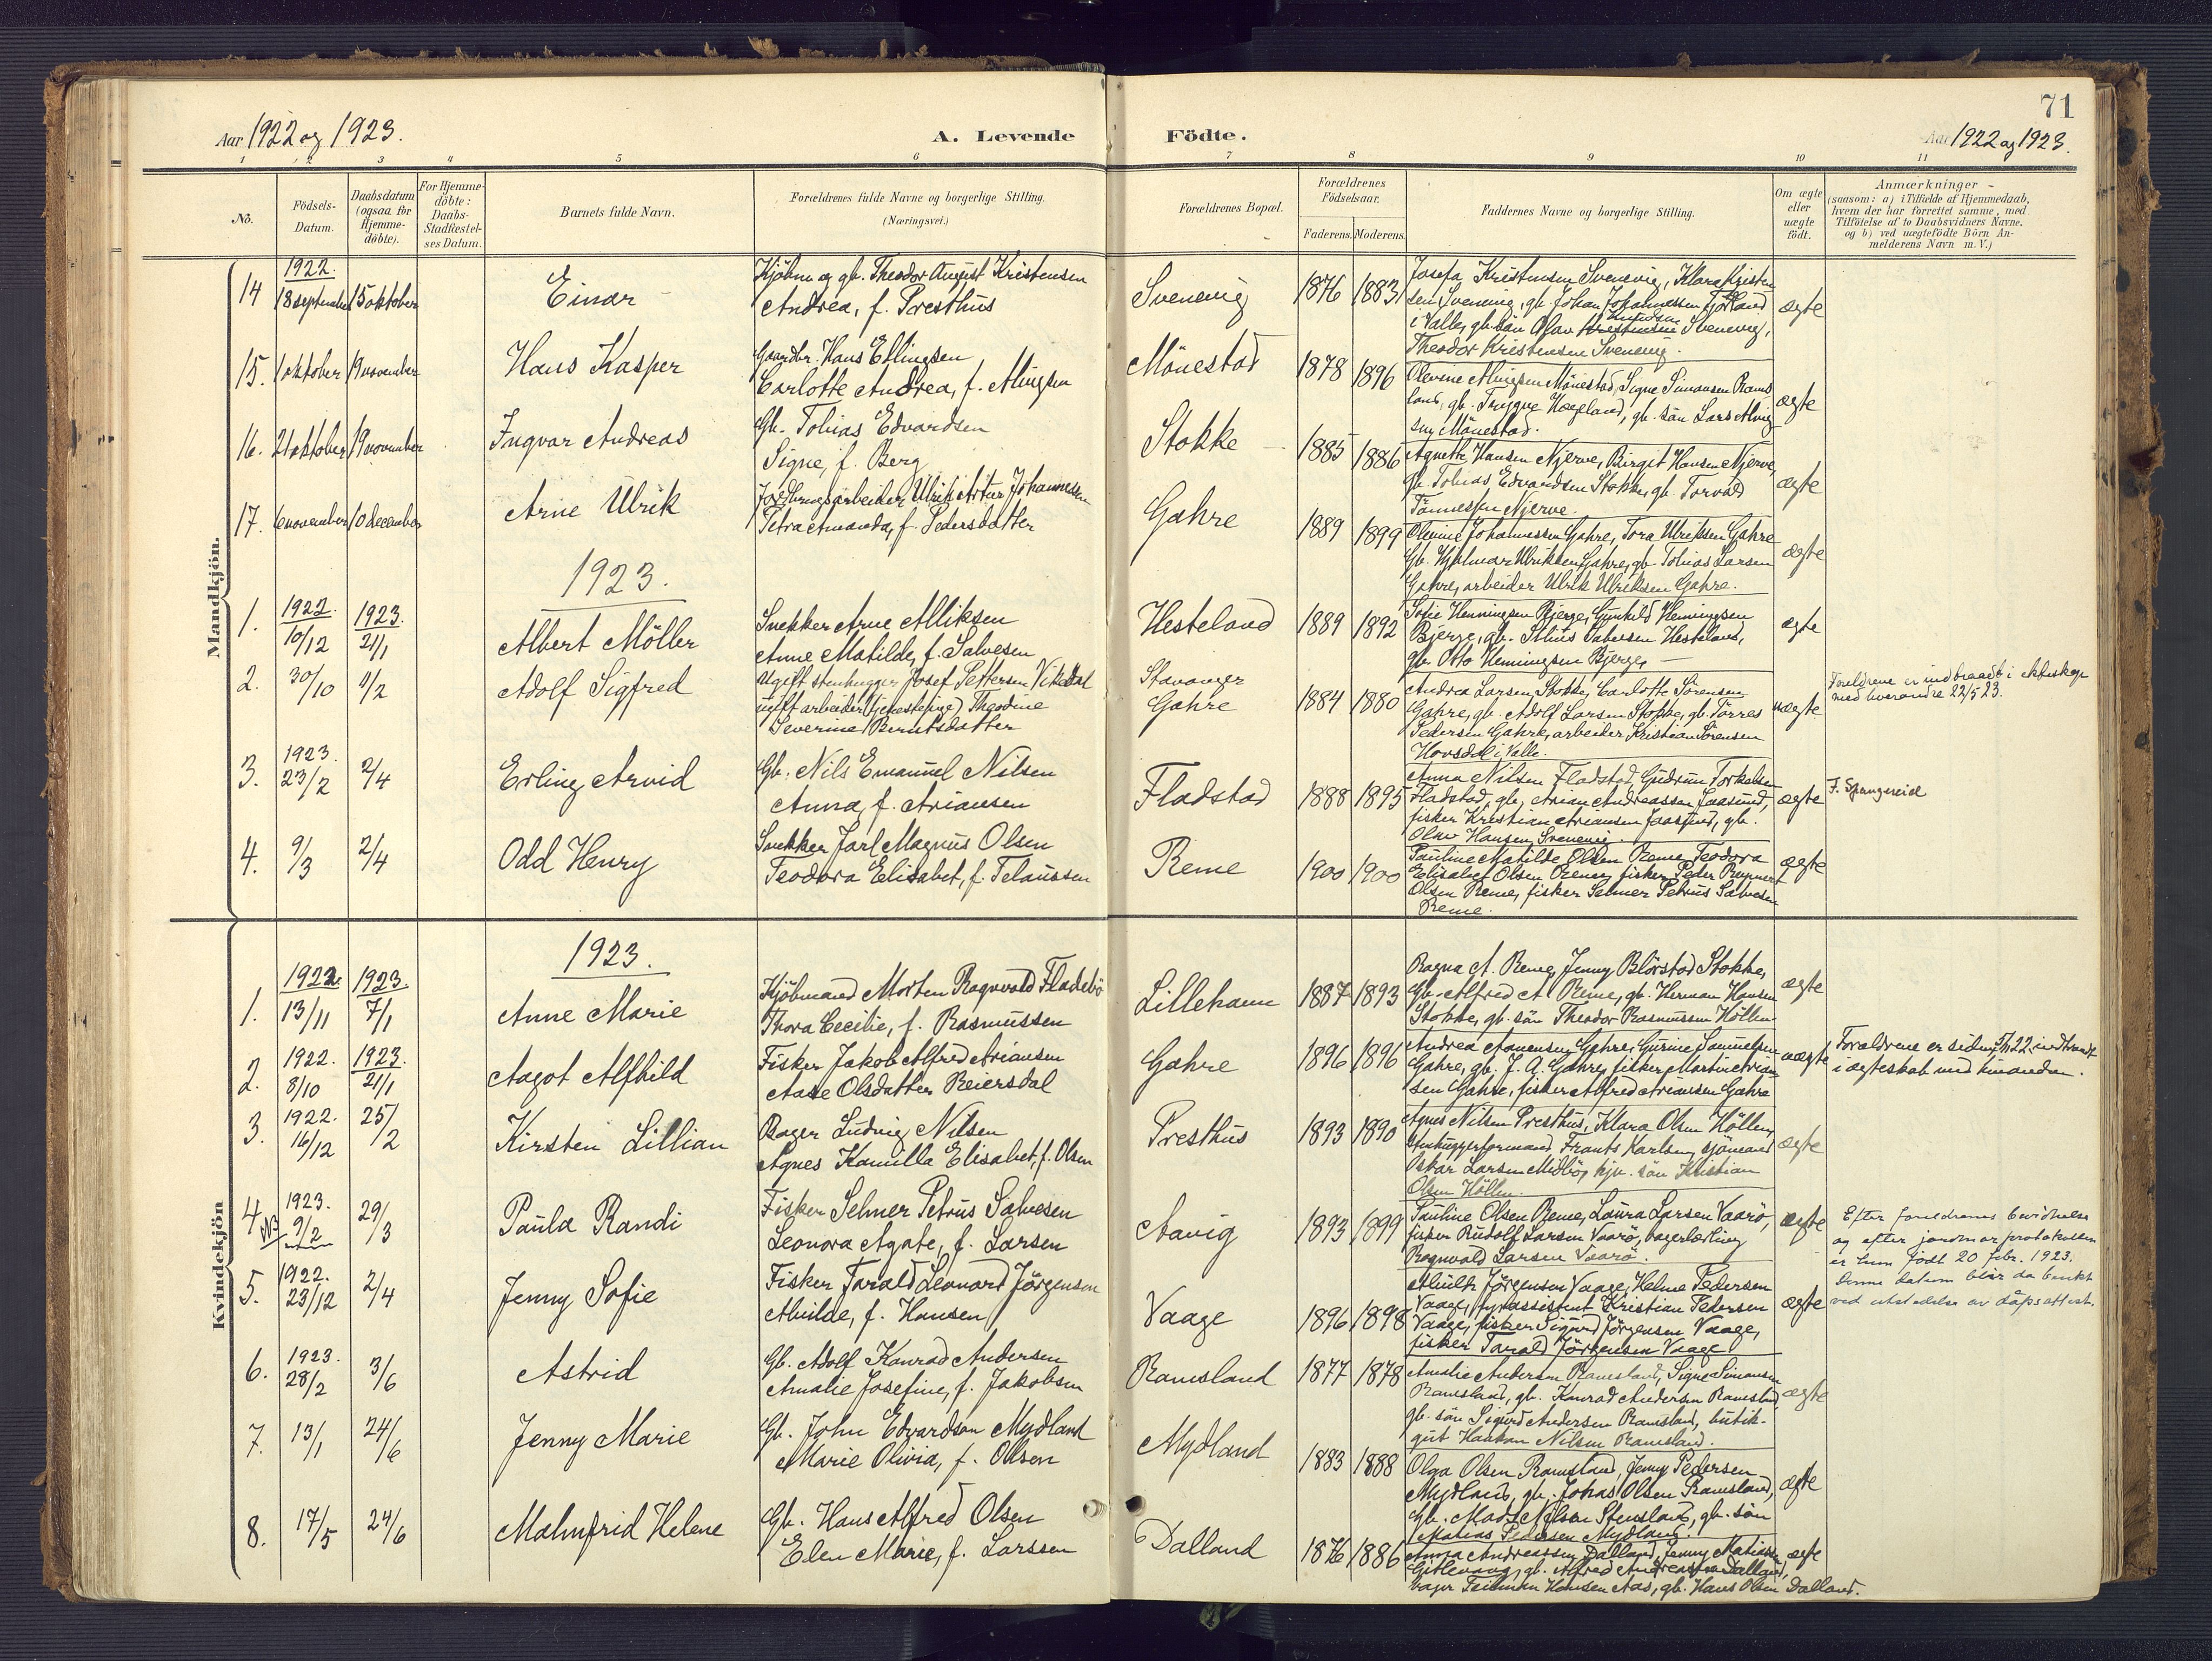 71
Aar 1922 og 1923.
A. Levende Födte.
Aar 1922 og 1923.
1 2 3 4 5 6 7 8 9 10 11
No.
Födsels-Datum.
Daabsdatum (ogsaa for Hjemme-döbte).
For Hjemme-döbte: Daabs-Stadfæstel-ses Datum.
Barnets fulde Navn.
Forældrenes fulde Navne og borgerlige Stilling. (Næringsvei.)
Forældrenes Bopæl.
Forældrenes Födselsaar.
Faderens. Moderens.
Faddernes Navne og borgerlige Stilling.
Om ægte eller uægte födt.
Anmærkninger
(saasom: a) i Tilfælde af Hjemmedaab, hvem der har forrettet samme, med Tilföielse af to Daabsvidners Navne. og b) ved uægtefödte Börn Anmelderens Navn m. V.)
Mandkjön.
14 1922. 18 september 15 oktober Einar
Kjöbm. og gb. Theodor August Kristensen
Andrea, f. Presthus
Svenevig 1876 1883
Josefa Kristensen Svenevig, Klara Kristen
sen Svenevig, gb. Johan Johannessen Fjorland
i Valle, gb. sön Olav Knudsen Svenevig,
Theodor Kristensen Svenevig.
ægte
15. 1 oktober 19 november Hans Kasper
Gaardbr. Hans Ellingsen
Carlotte Andrea, f. Alingsen
Mönestad 1878 1896
Mönestad, Signe Simonsen Rams
land, gb. Trygve Haegland, gb. sön Lars
Mönestad.
ægte
16. 21 oktober 19 november Ingvar Andreas
Gb. Tobias Edvardsen
Signe, f. Berg
Stokke 1885 1886
Agnethe Hansen Njerve, Birgit Hansen Njerve,
gb. Tobias Edvardsen Stokke, gb. Torvald
Tönnessen Njerve.
ægte
17. 6 november 10 december Arne Ulrik
Jordbrugsarbeider Ulrik Artur Johannesen
Petra Amanda, f. Pedersdatter
Gahre 1889 1899
Olemine Johannessen Gahre, Tora Ulriksen Gahre
Gb. Hjalmar Ulriksen Gahre, gb. Tobias Larsen
Gahre, arbeider Ulrik Ulriksen Gahre.
ægte
1923.
1. 1922. 10/12 1923. 21/1 Albert Möller
Snekker Arne Alliksen
Anne Matilde, f. Salvesen
Hesteland 1889 1892
Sofie Henningsen Bjerge, Gunhild Henningsen
Bjerge, gb. Salvesen Hesteland,
gb. Otto Henningsen Bjerge,
ægte
2. 30/10 4/2 Adolf Sigfred
Ugift stenhugger Josef Pettersen Vikedal
ugift arbeider (tjenestepige) Theodine
Severine Berntsdatter
Stavanger
Gahre 1884 1880
Andrea Larsen Stokke, Carlotte Sörensen
Gahre, gb. Adolf Larsen Stokke, gb. Törres
Pedersen Gahre, arbeider Kristian Sörensen
Hovsdal i Valle.
uægte
Foreldrene er indtraadt i ekteskap
med hverandre 22/5 23.
3. 1923. 23/2 2/4 Erling Arvid
Gb. Nils Emanuel Nilsen
Anna, f. Ariansen
Fladstad 1888 1895
Anna Nilsen Fladstad, Gudrun Torkelsen
Fladstad, gb. Arian Andreassen Jaasund,
fisker Kristian Ariansen Jaasund, gb.
Olav Hansen Svenevig.
ægte
F. Spangereid
4. 9/3 2/4 Odd Henry
Snekker Jarl Magnus Olsen
Teodora Elisabet, f. Telaussen
Reme 1900 1900
Pauline Matilde Olsen Reme, Teodora
Elisabet Olsen Reme, fisker Peder
Olsen Reme, fisker Selmer Petrus Salvesen
Reme.
ægte
Kvindekjön
1923.
1. 1922. 13/11 1923. 7/1 Anne Marie
Kjöbmand Morten Ragnvald Fladebö
Thora Cecilie, f. Rasmussen
Lillehavn 1887 1893
Ragna A. Reme, Jenny Blörstad Stokke,
Gb. Alfred A. Reme, gb. Herman Hansen
Stokke, gb. sön Theodor Rasmussen Höllen
ægte
2. 1922. 8/10 1923. 21/1 Aagot Alfhild
Fisker Jakob Alfred Ariansen
Aase Olsdatter Reiersdal
Gahre 1896 1896
Andrea Gahre, Gurine Samuelsen
Gahre, gb. J. A. Gahre, fisker Martin Arian
sen Gahre, fisker Alfred Ariansen Gahre
uægte
Forældrene er siden indtraadt
i ægteskab med hinanden.
3. 1922. 16/12 25/2 Kirsten Lillian
Bager Ludvig Nilsen
Agnes Kamilla Elisabet, f. Olsen
Presthus 1893 1890
Agnes Nilsen Presthus, Klara Olsen Höllen,
stenhuggerformand Frants Karlsen, sjömand
Oskar Larsen Midbö, kjn. sön Kristian
Olsen Höllen.
ægte
4 NB 1923. 9/2 29/3 Paula Randi
Fisker Selmer Petrus Salvesen
Leonora Agate, f. Larsen
Aavig 1893 1899
Pauline Olsen Reme, Laura Larsen Vaarö,
fisker Rudolf Larsen Vaarö, bagerlærling
Ragnvald Larsen Vaarö.
ægte
Efter foreldrenes bevidnelse
og efter jordmorprotokollen
er hun födt 20 febr. 1923.
Denne datum blir da benyttet
ved utstedelse av dåpsattest.
5. 1922. 23/12 2/4 Jenny Sofie
Fisker Tarald Leonard Jörgensen
Alvilde, f. Hansen
Vaage 1896 1898
Alvilde Jörgensen Vaage, Helene Pedersen
Vaage, fyrassistent Kristian Pedersen
Vaage, fisker Sigurd Jörgensen Vaage,
fisker Tarald Jörgensen Vaage
ægte
6. 1923. 28/2 3/6 Astrid
Gb. Adolf Konrad Andersen
Amalie Josefine, f. Jakobsen
Ramsland 1877 1878
Amalie Andersen Ramsland, Signe Simonsen
Ramsland, gb. Konrad Andersen Ramsland,
gb. sön Sigurd Andersen Ramsland, butik-
gut Haakon Nilsen Ramsland.
ægte
7. 13/1 24/6 Jenny Marie
Gb. John Edvardsen Mydland
Marie Olivia, f. Olsen
Mydland 1883 1888
Olga Olsen Ramsland, Jenny Pedersen
Mydland, gb. Johas Olsen Ramsland,
Gb. Mads Nilsen Stensland, gb. sön
Matias Pedersen Mydland.
ægte
8. 17/5 24/6 Malmfrid Helene
Gb. Hans Alfred Olsen
Elen Marie, f. Larssen
Dalland 1876 1886
Anna Andreassen Dalland, Jenny Matiassen
Gitlevaag, gb. Alfred Andreassen Dalland,
bager Teilman Hansen Aas, gb. Hans Olsen Dalland.
ægte